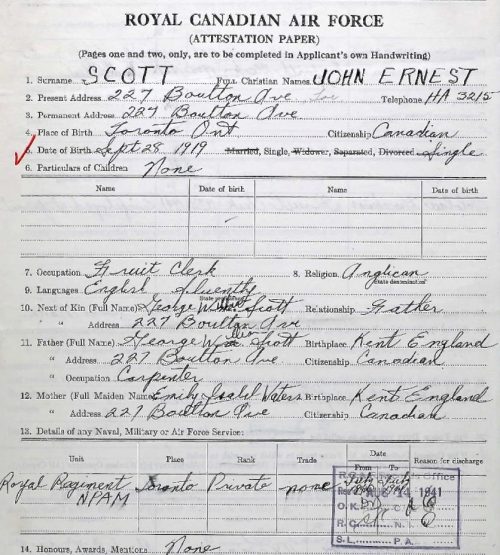 ROYAL CANADIAN AIR FORCE
(ATTESTATION PAPER)
(Pages one and two, only, are to be completed in Applicant's own Handwriting)
1. Surname SCOTT Full Christian Names JOHN ERNEST
2. Present Address 227 Boulton Ave Tor Telephone HA 3215
3. Permanent Address 227 Boulton Ave
4. Place of Birth Toronto Ont Citizenship Canadian
5. Date of Birth Sept 28 1919 Married, Single, Widower, Separated, Divorced Single
6. Particulars of Children None
Name Date of birth Name Date of birth
7. Occupation Fruit Clerk 8. Religion Anglican
State denomination
9. Languages English fluently
10. Next of Kin (Full Name) George Scott Relationship Father
" Address 227 Boulton Ave
11. Father (Full Name) George Scott Birthplace Kent England
" Address 227 Boulton Ave Citizenship Canadian
" Occupation Carpenter
12. Mother (Full Maiden Name) Emily Isabel Waters Birthplace Kent England
" Address 227 Boulton Ave Citizenship Canadian
13. Details of any Naval, Military or Air Force Service:
Unit Place Rank Trade Date Reason for discharge
From To
Royal Regiment Toronto Private none
NPAM
Office
AUG 14 1941
O.K.
R.C. N.
S.L. P.A.
14. Honours, Awards, Mentions None